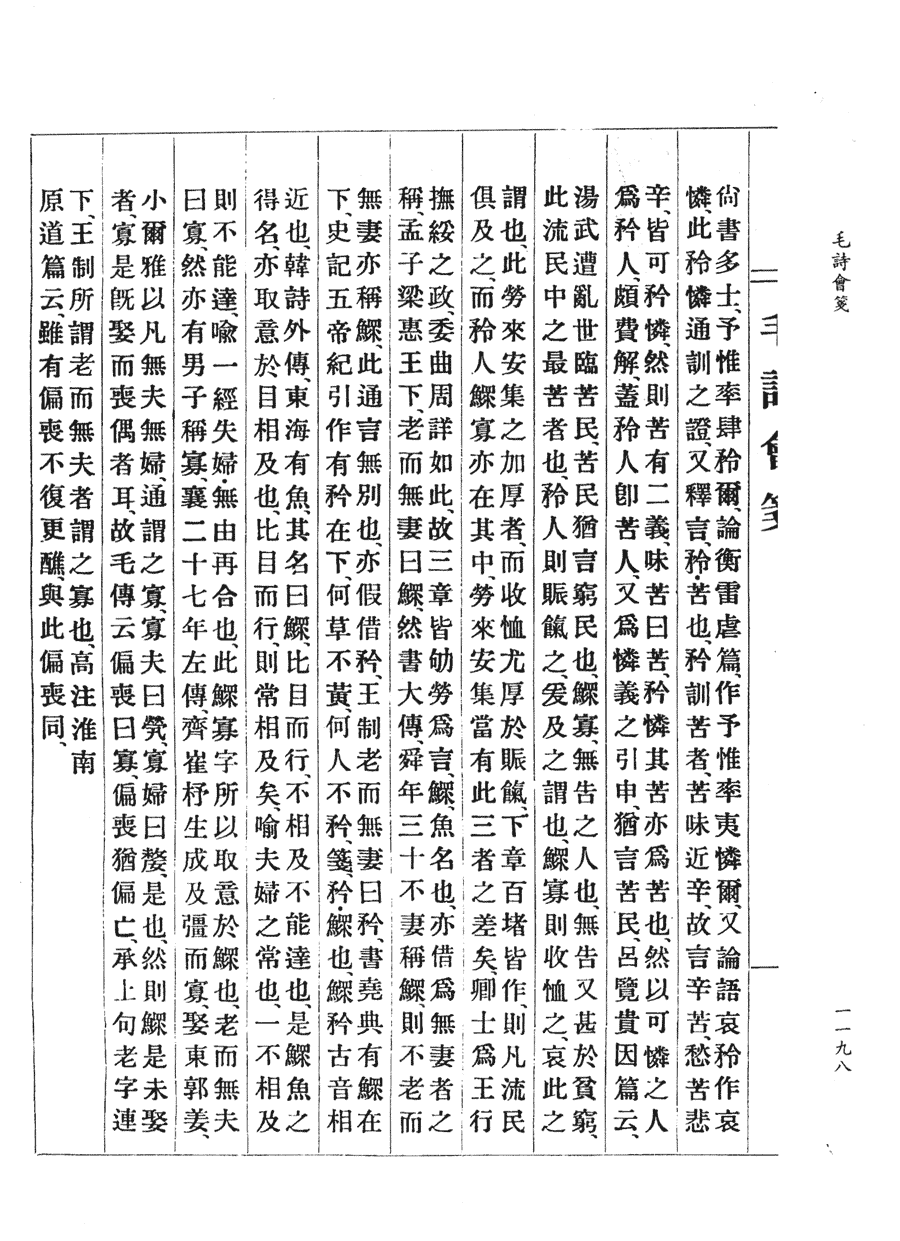 毛詩會箋
一一九八
毛詩會箋
尙書多士、予惟率肆矜爾、論衡雷虐篇、作予惟率夷憐爾、又論語哀矜作哀
憐、此矜憐通訓之證、又釋言、矜・苦也、矜訓苦者、苦味近辛、故言辛苦、愁苦悲
辛、皆可矜憐、然則苦有二義、味苦曰苦、矜憐其苦亦爲苦也、然以可憐之人
爲矜人、頗費解、蓋矜人卽苦人、又爲憐義之引申、猶言苦民、呂覽貴因篇云、
湯武遭亂世臨苦民、苦民猶言窮民也、鰥寡、無告之人也、無告又甚於貧窮、
此流民中之最苦者也、矜人則賑餼之、爰及之謂也、鰥寡則收恤之、哀此之
謂也、此勞來安集之加厚者、而收恤尤厚於賑餼、下章百堵皆作、則凡流民
俱及之、而矜人鰥寡亦在其中、勞來安集當有此三者之差矣、卿士爲王行
撫綏之政、委曲周詳如此、故三章皆劬勞爲言、鰥、魚名也、亦借爲無妻者之
稱、孟子梁惠王下、老而無妻曰鰥、然書大傳、舜年三十不妻稱鰥、則不老而
無妻亦稱鰥、此通言無別也、亦假借矜、王制老而無妻曰矜、書堯典、有鰥在
下、史記五帝紀引作有矜在下、何草不黃、何人不矜、箋、矜・鰥也、鰥矜古音相
近也、韓詩外傳、東海有魚、其名曰鰥、比目而行、不相及不能達也、是鰥魚之
得名、亦取意於目相及也、比目而行、則常相及矣、喻夫婦之常也、一不相及
則不能達、喻一經失婦・無由再合也、此鰥寡字所以取意於鰥也、老而無夫
曰寡、然亦有男子稱寡、襄二十七年左傳、齊崔杼生成及彊而寡、娶東郭姜、
小爾雅以凡無夫無婦、通謂之寡、寡夫曰煢、寡婦曰嫠、是也、然則鰥是未娶
者、寡是旣娶而喪偶者耳、故毛傳云偏喪曰寡、偏喪猶偏亡、承上句老字連
下、王制所謂老而無夫者謂之寡也、高注淮南
原道篇云、雖有偏喪不復更醮、與此偏喪同、